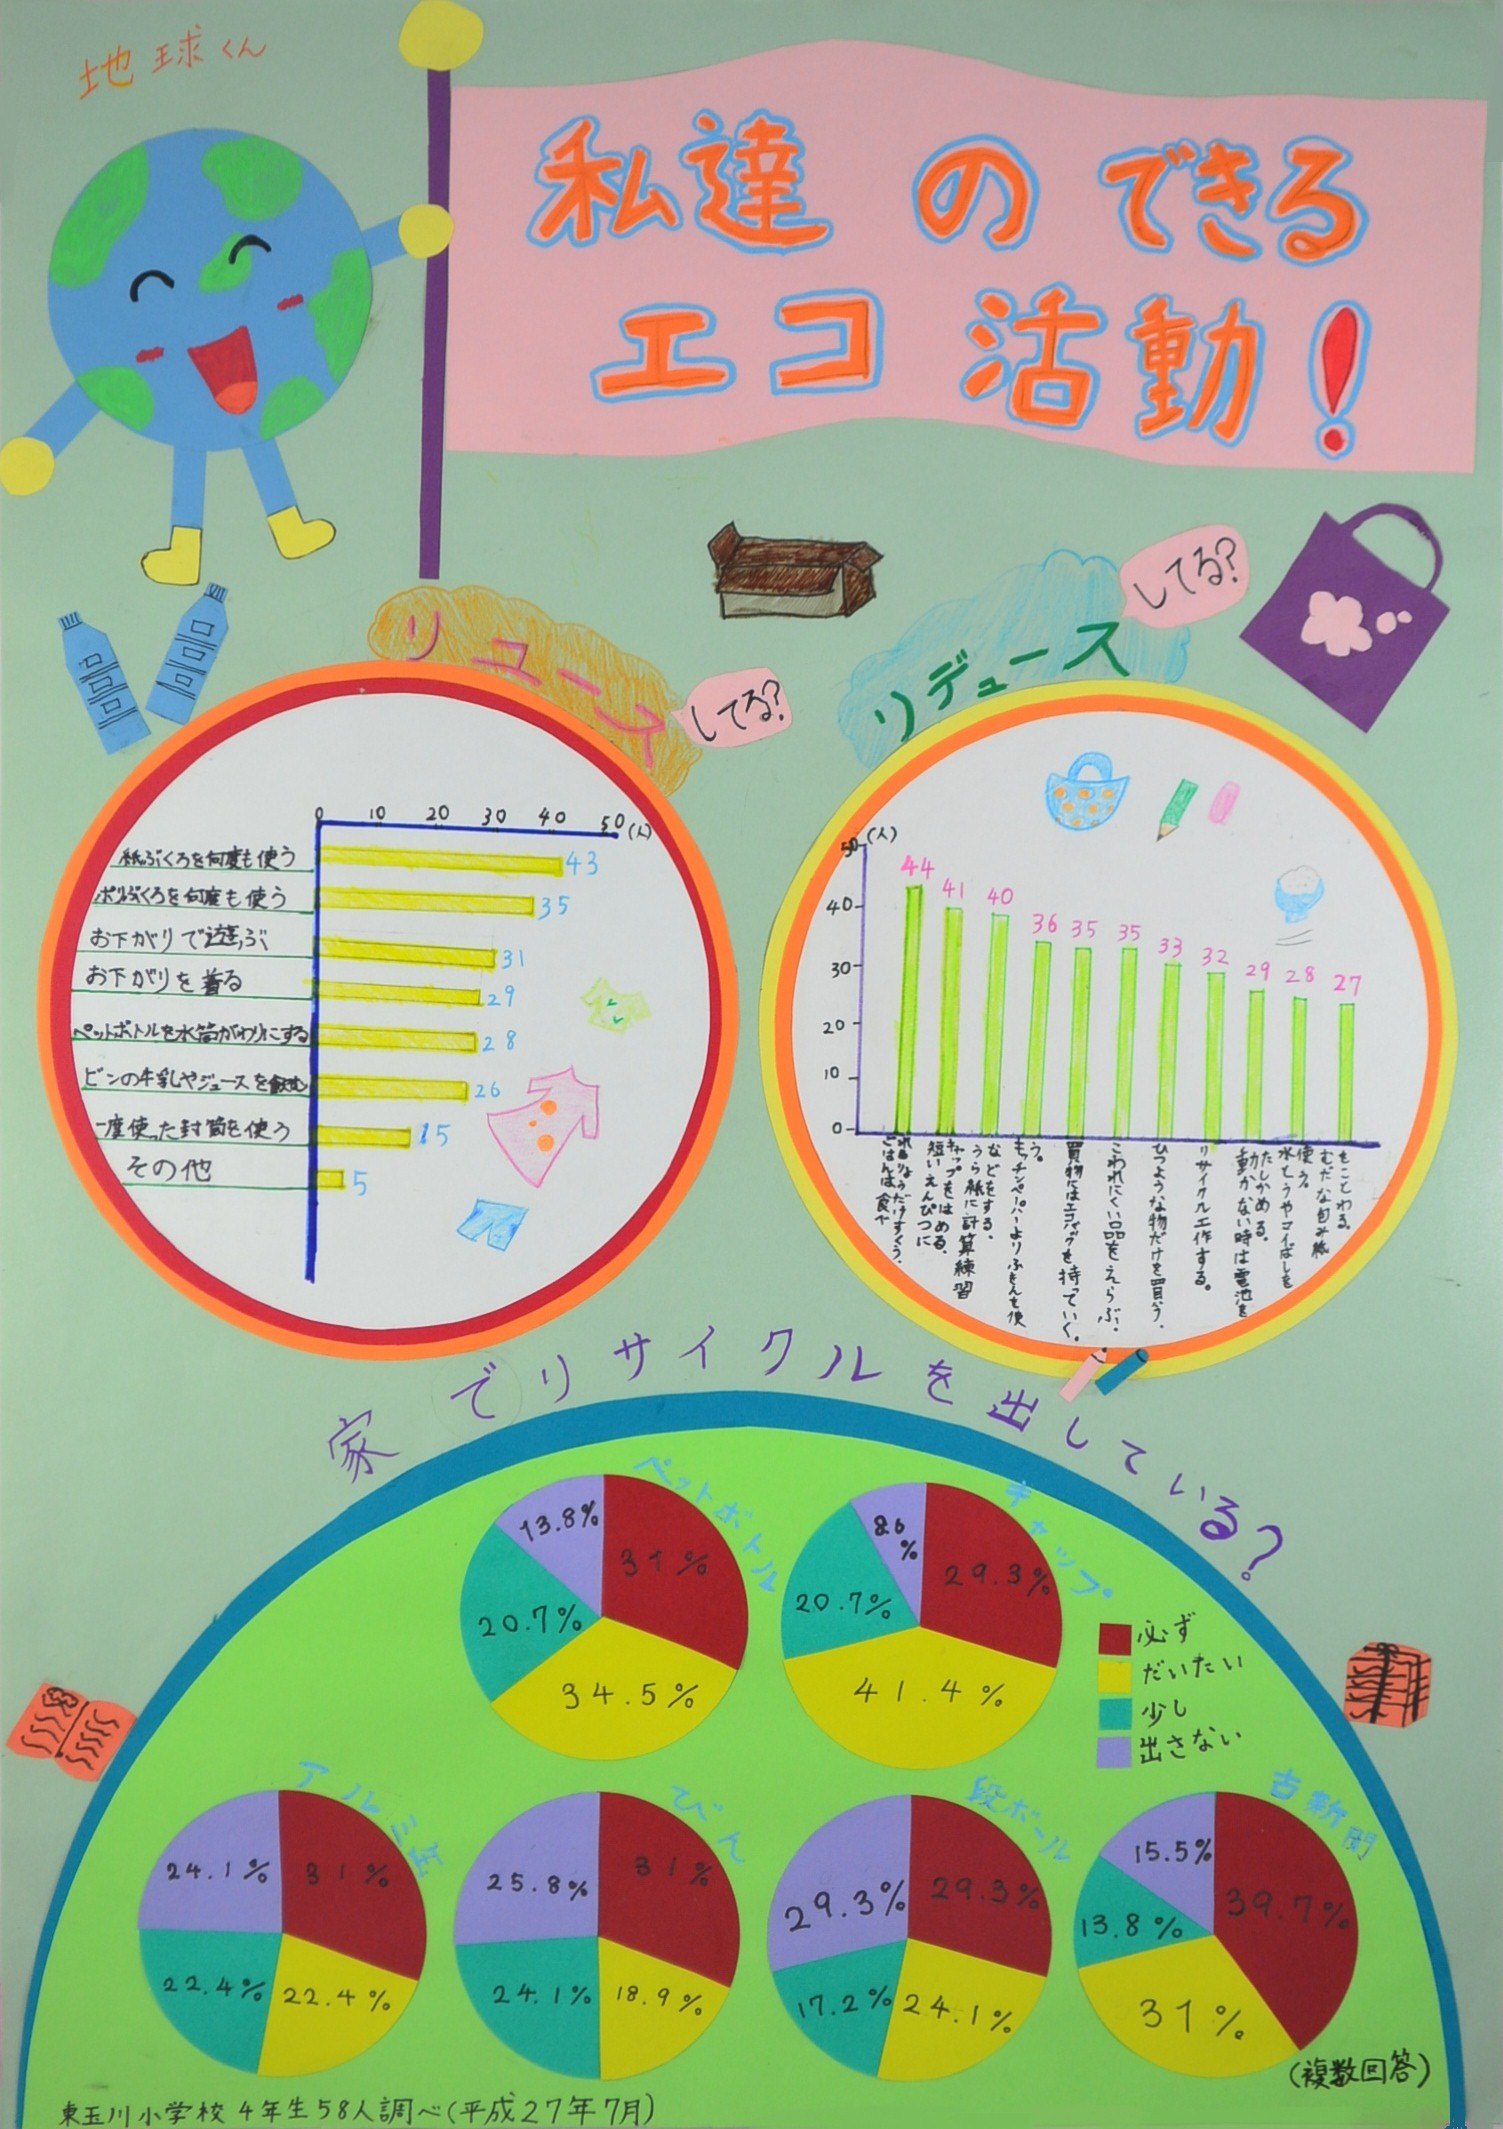 地球くん
私達のできる
エコ活動!
リユース
してる?
リデュース
してる?
0 10 20 30 40 50 (人)
紙ぶくろを何度も使う 43
ポリぶくろを何度も使う 35
お下がりで遊ぶ 31
お下がりを着る 29
ペットボトルを水筒がわりにする 28
ビンの牛乳やジュースを飲む 26
一度使った封筒を使う 15
その他 5
50 (人)
40
30
20
10
0
44 41 40 36 35 35 33 32 29 28 27
ごはんは食べ
れるりょうだけすくう。
短いえんぴつに
キャップをはめる。
うら紙に計算練習
などをする。
キッチンペーパーよりふきんを使
う。
買物にはエコバッグを持っていく。
こわれにくい品をえらぶ。
ひつような物だけを買う。
リサイクル工作する。
動かない時は電池を
たしかめる。
水とうやマイばしを
使う。
むだな包み紙
をことわる。
家でリサイクルを出している?
ペットボトル
31%
34.5%
20.7%
13.8%
キャップ
29.3%
41.4%
20.7%
8.6%
必ず
だいたい
少し
出さない
アルミ缶
31%
22.4%
22.4%
24.1%
びん
31%
18.9%
24.1%
25.8%
段ボール
29.3%
24.1%
17.2%
29.3%
古新聞
39.7%
31%
13.8%
15.5%
(複数回答)
東玉川小学校4年生58人調べ(平成27年7月)